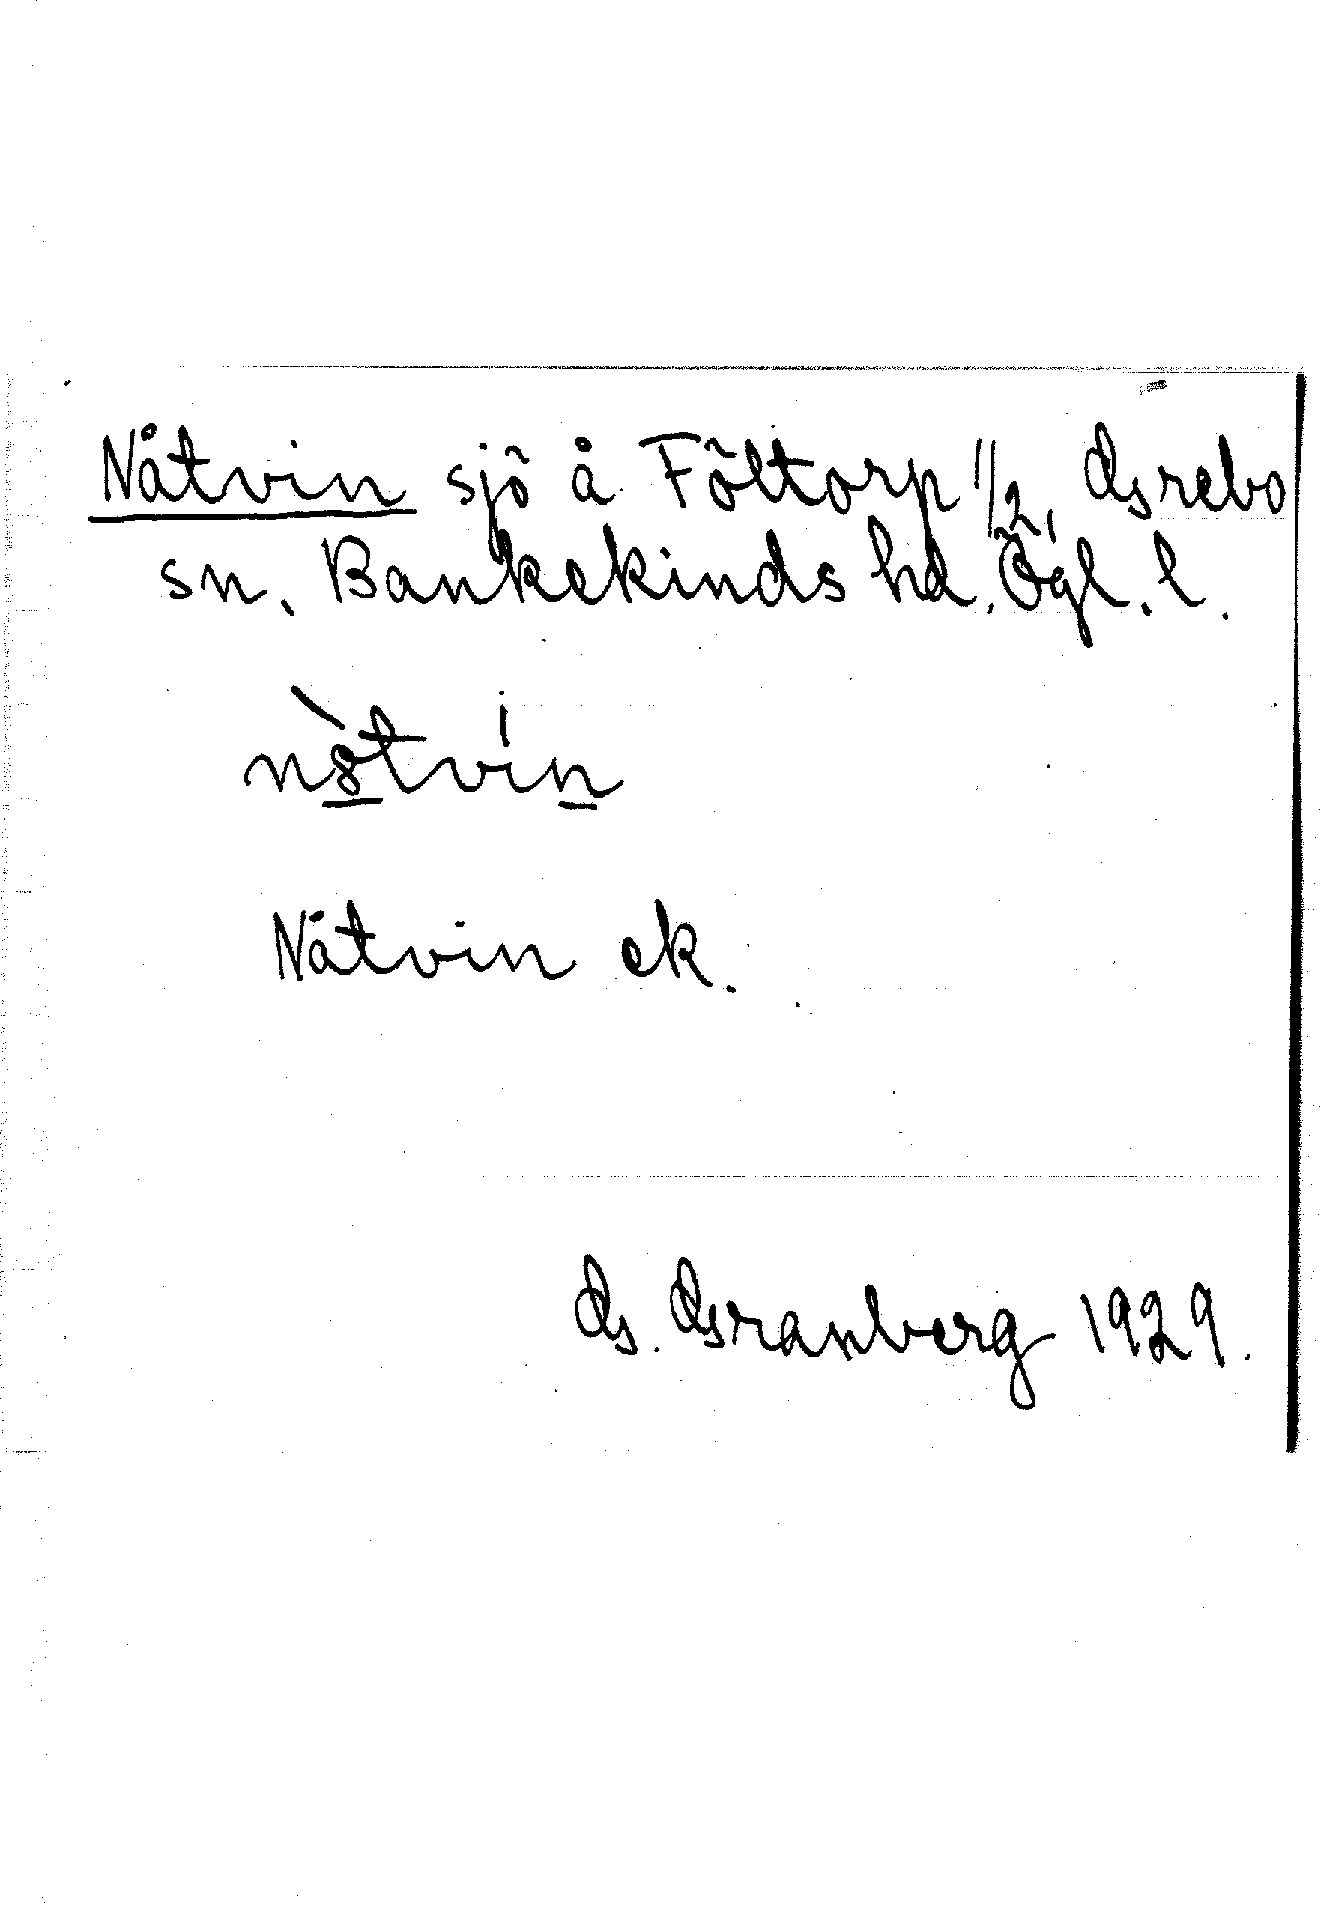 Nåtvin sjö å Föltorp 1/2, Grebo
sn. Bankekinds hd. Ögl. l.
nòtvin
Nåtvin ek.
G. Granberg 1929.